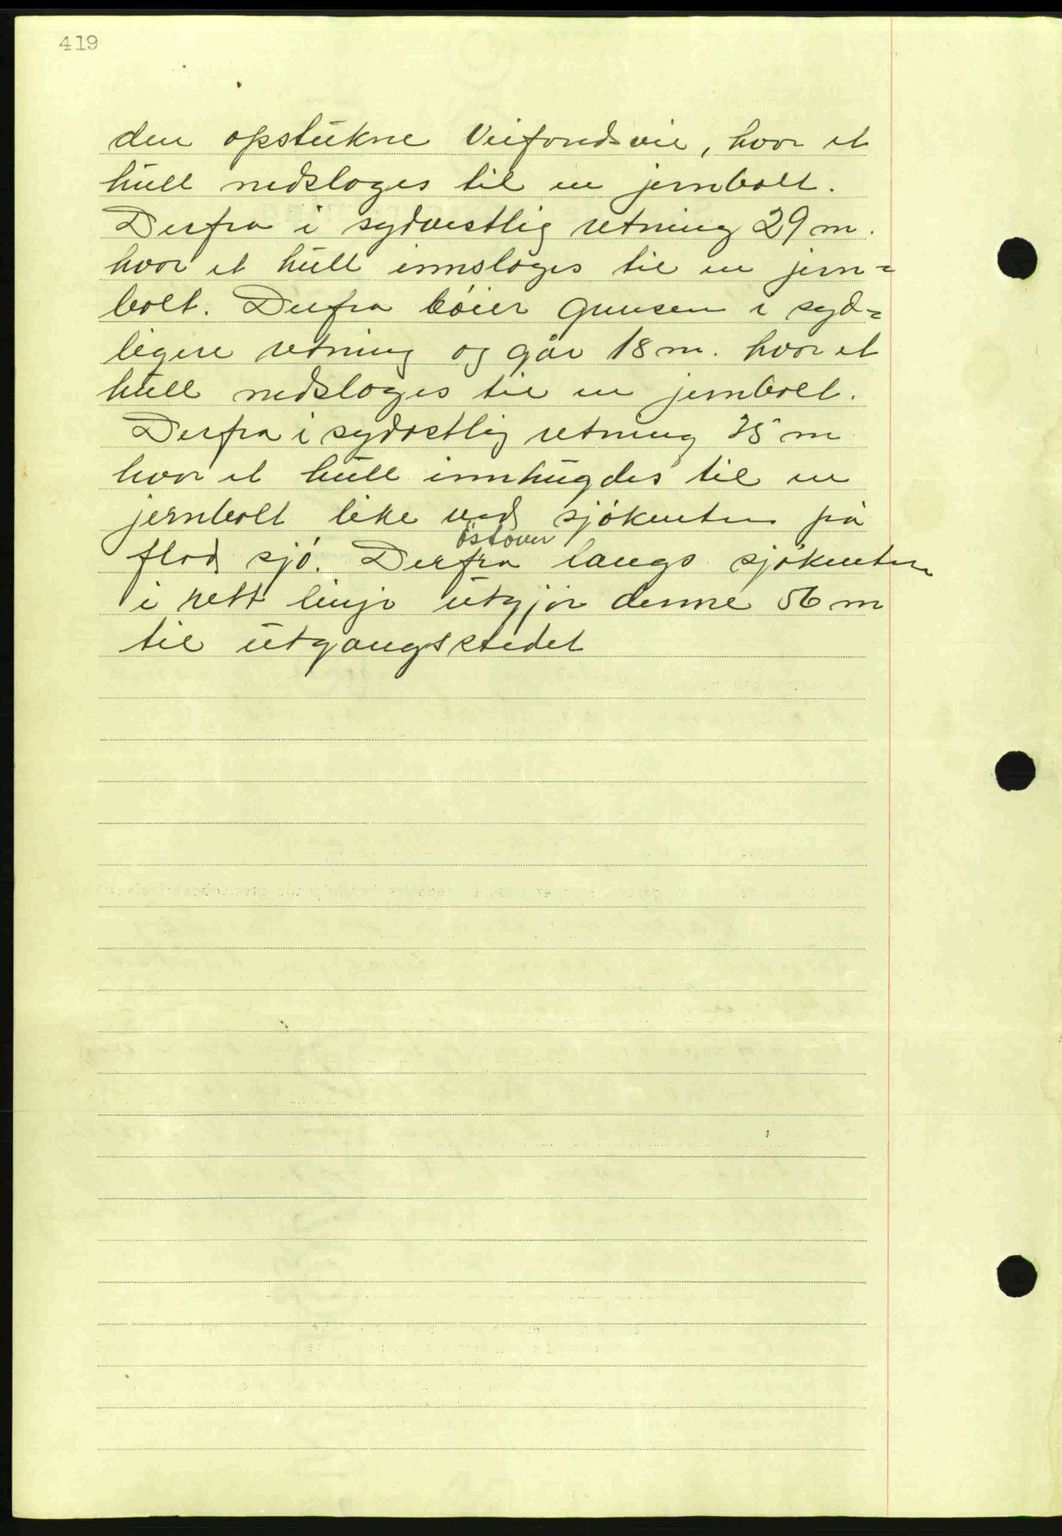 419
den opstukne Veifondsvei, hvor et
hull nedsloges til en jernbolt.
Derfra i sydvestlig retning 29 m.
hvor et hull innsloges til en jern=
bolt. Derfra bøier grensen i syd=
ligere retning og går 18 m. hvor et
hull nedsloges til en jernbolt.
Derfra i sydøstlig retning 25 m
hvor et hull innhugdes til en
jernbolt like ved sjökanten på
östover
flod sjö. Derfra langs sjökanten
i rett linje utgjör denne 56 m
til utgangsstedet